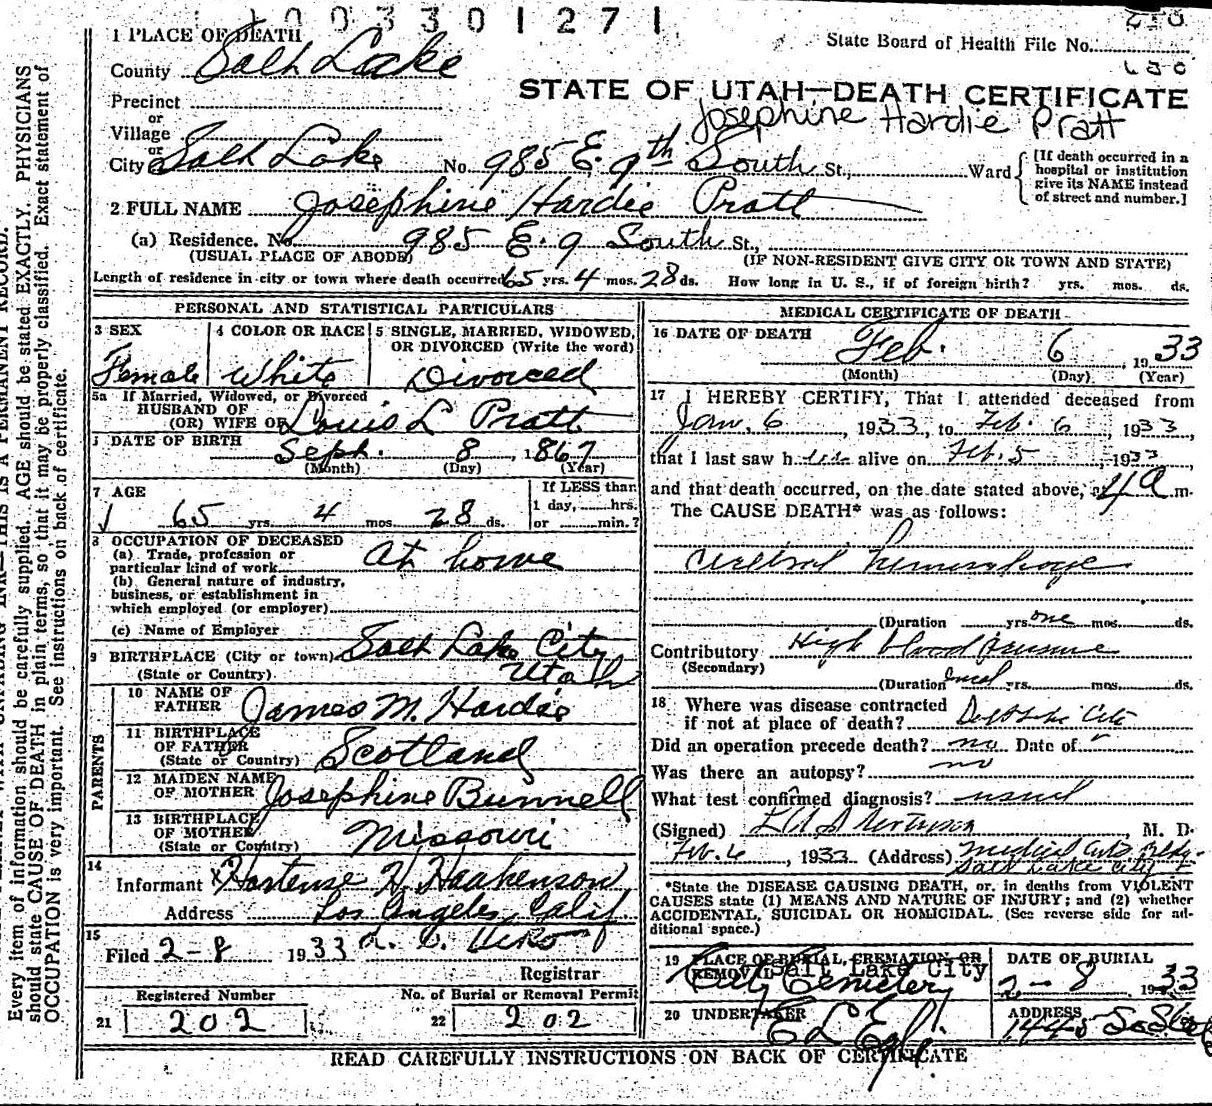 1003301271
1 PLACE OF DEATH
State Board of Health File No.
County Salt Lake
STATE OF UTAH—DEATH CERTIFICATE
Precinct
Josephine Hardie Pratt
or
Village
or
City Salt Lake No. 985 E. 9th South St., Ward
[If death occurred in a hospital or institution give its NAME instead of street and number.]
2 FULL NAME Josephine Hardie Pratt
(a) Residence. No. 985 E. 9 South St.,
(USUAL PLACE OF ABODE) (IF NON-RESIDENT GIVE CITY OR TOWN AND STATE)
Length of residence in city or town where death occurred 65 yrs. 4 mos. 28 ds. How long in U. S., if of foreign birth? yrs. mos. ds.
PERSONAL AND STATISTICAL PARTICULARS
3 SEX
Female
4 COLOR OR RACE
White
5 SINGLE, MARRIED, WIDOWED,
OR DIVORCED (Write the word)
Divorced
5a If Married, Widowed, or Divorced
HUSBAND OF
(OR) WIFE OF Louis L Pratt
DATE OF BIRTH
Sept. 8, 1867
(Month) (Day) (Year)
7 AGE
65 yrs. 4 mos. 28 ds.
If LESS than
1 day, hrs.
or min.?
8 OCCUPATION OF DECEASED
(a) Trade, profession or
particular kind of work At home
(b) General nature of industry,
business, or establishment in
which employed (or employer)
(c) Name of Employer
9 BIRTHPLACE (City or town) Salt Lake City
(State or Country) Utah
PARENTS
10 NAME OF
FATHER James M. Hardie
11 BIRTHPLACE
OF FATHER
(State or Country) Scotland
12 MAIDEN NAME
OF MOTHER Josephine Bunnell
13 BIRTHPLACE
OF MOTHER
(State or Country) Missouri
14
Informant Hortense H. Haakenson
Address Los Angeles, Calif
15
Filed 2-8 1933
Registrar
Registered Number
21 202
No. of Burial or Removal Permit
22 202
MEDICAL CERTIFICATE OF DEATH
16 DATE OF DEATH
Feb. 6 1933
(Month) (Day) (Year)
17 I HEREBY CERTIFY, That I attended deceased from
Jan. 6, 1933, to Feb. 6, 1933,
that I last saw her alive on Feb. 5, 1933
and that death occurred, on the date stated above, at 4 a m.
The CAUSE DEATH* was as follows:
Cerebral hemorrhage
(Duration yrs. one mos. ds.
Contributory High blood pressure
(Secondary)
(Duration yrs. mos. ds.
18 Where was disease contracted
if not at place of death?
Did an operation precede death? no Date of
Was there an autopsy? no
What test confirmed diagnosis? usual
(Signed) M. D.
Feb. 6, 1933 (Address) Medical Arts Bldg.
Salt Lake City
*State the DISEASE CAUSING DEATH, or, in deaths from VIOLENT
CAUSES state (1) MEANS AND NATURE OF INJURY; and (2) whether
ACCIDENTAL, SUICIDAL OR HOMICIDAL. (See reverse side for ad-
ditional space.)
19 PLACE OF BURIAL, CREMATION OR
REMOVAL Salt Lake City
City Cemetery
DATE OF BURIAL
2-8 1933
20 UNDERTAKER
ADDRESS
READ CAREFULLY INSTRUCTIONS ON BACK OF CERTIFICATE
THIS IS A PERMANENT RECORD.
Every item of information should be carefully supplied. AGE should be stated EXACTLY. PHYSICIANS
should state CAUSE OF DEATH in plain terms, so that it may be properly classified. Exact statement of
OCCUPATION is very important. See instructions on back of certificate.